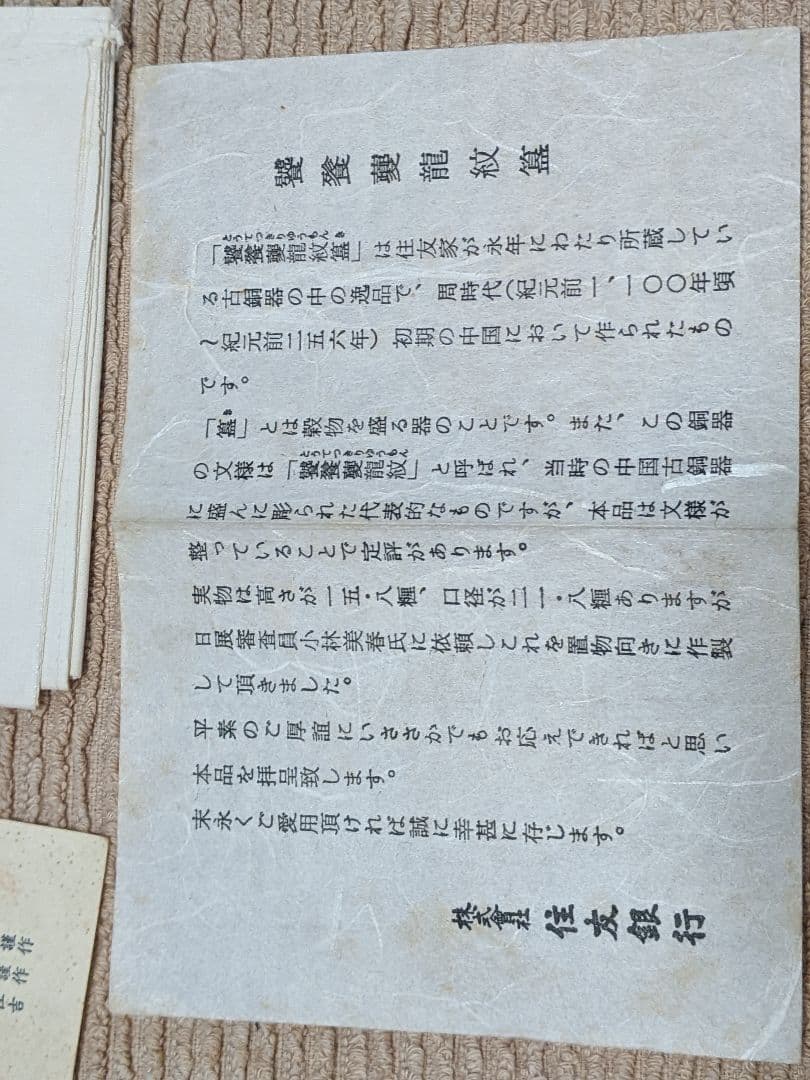 饕餮夔龍紋簋
「饕餮夔龍紋簋」は住友家が永年にわたり所蔵してい
とうてつきりゅうもんき
る古銅器の中の逸品で、周時代（紀元前一、一〇〇年頃
〜紀元前二五六年）初期の中国において作られたもの
です。
「簋」とは穀物を盛る器のことです。また、この銅器
き
の文様は「饕餮夔龍紋」と呼ばれ、当時の中国古銅器
とうてつきりゅうもん
に盛んに彫られた代表的なものですが、本品は文様が
整っていることで定評があります。
実物は高さが一五・八糎、口径が二一・八糎ありますが
日展審査員小林美春氏に依頼しこれを置物向きに作製
して頂きました。
平素のご厚誼にいささかでもお応えできればと思い
本品を拝呈致します。
末永くご愛用頂ければ誠に幸甚に存じます。
株式會社 住友銀行
謹作
謹作
吉